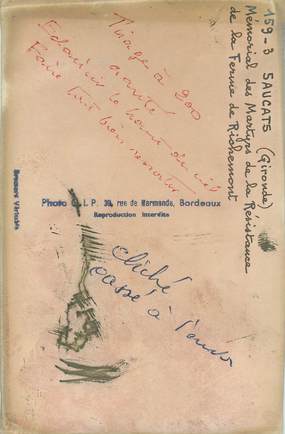 159-3 SAUCATS (Gironde)
Mémorial des Martyrs de la Résistance
de la Ferme de Richemont
Tirage à 200
Eclaircir le
Faire très bien
Photo C.L.P. 39, rue de Marmande, Bordeaux
Reproduction Interdite
Bromure Véritable
cliché
cassé à